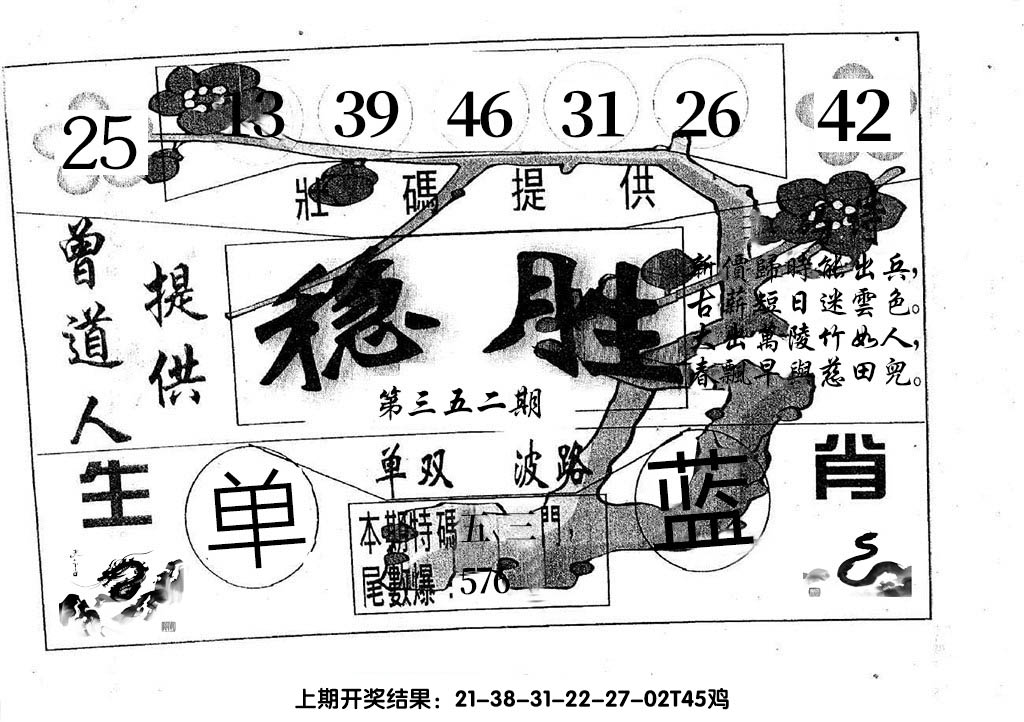 25 13 39 46 31 26 42
壯碼提供
曾道人
提供
稳胜
第三五二期
新借歸時能出兵，
古薪短日迷雲色。
大出萬陵竹如人，
春飄早與慈田兜。
单双 波路
生肖
单
蓝
本期特碼五、三門，
尾數爆：576
上期开奖结果：21-38-31-22-27-02T45鸡